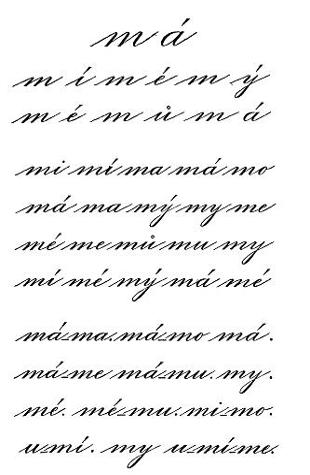 m á
m í m é m ý
m é m ů m á
mi mí ma má mo
má ma mý my me
mé me mů mu my
mí mé mý má mé
má-ma. má-mo má.
má-me má-mu. my.
mé. mé-mu. mi-mo.
u-mí. my u-mí-me.